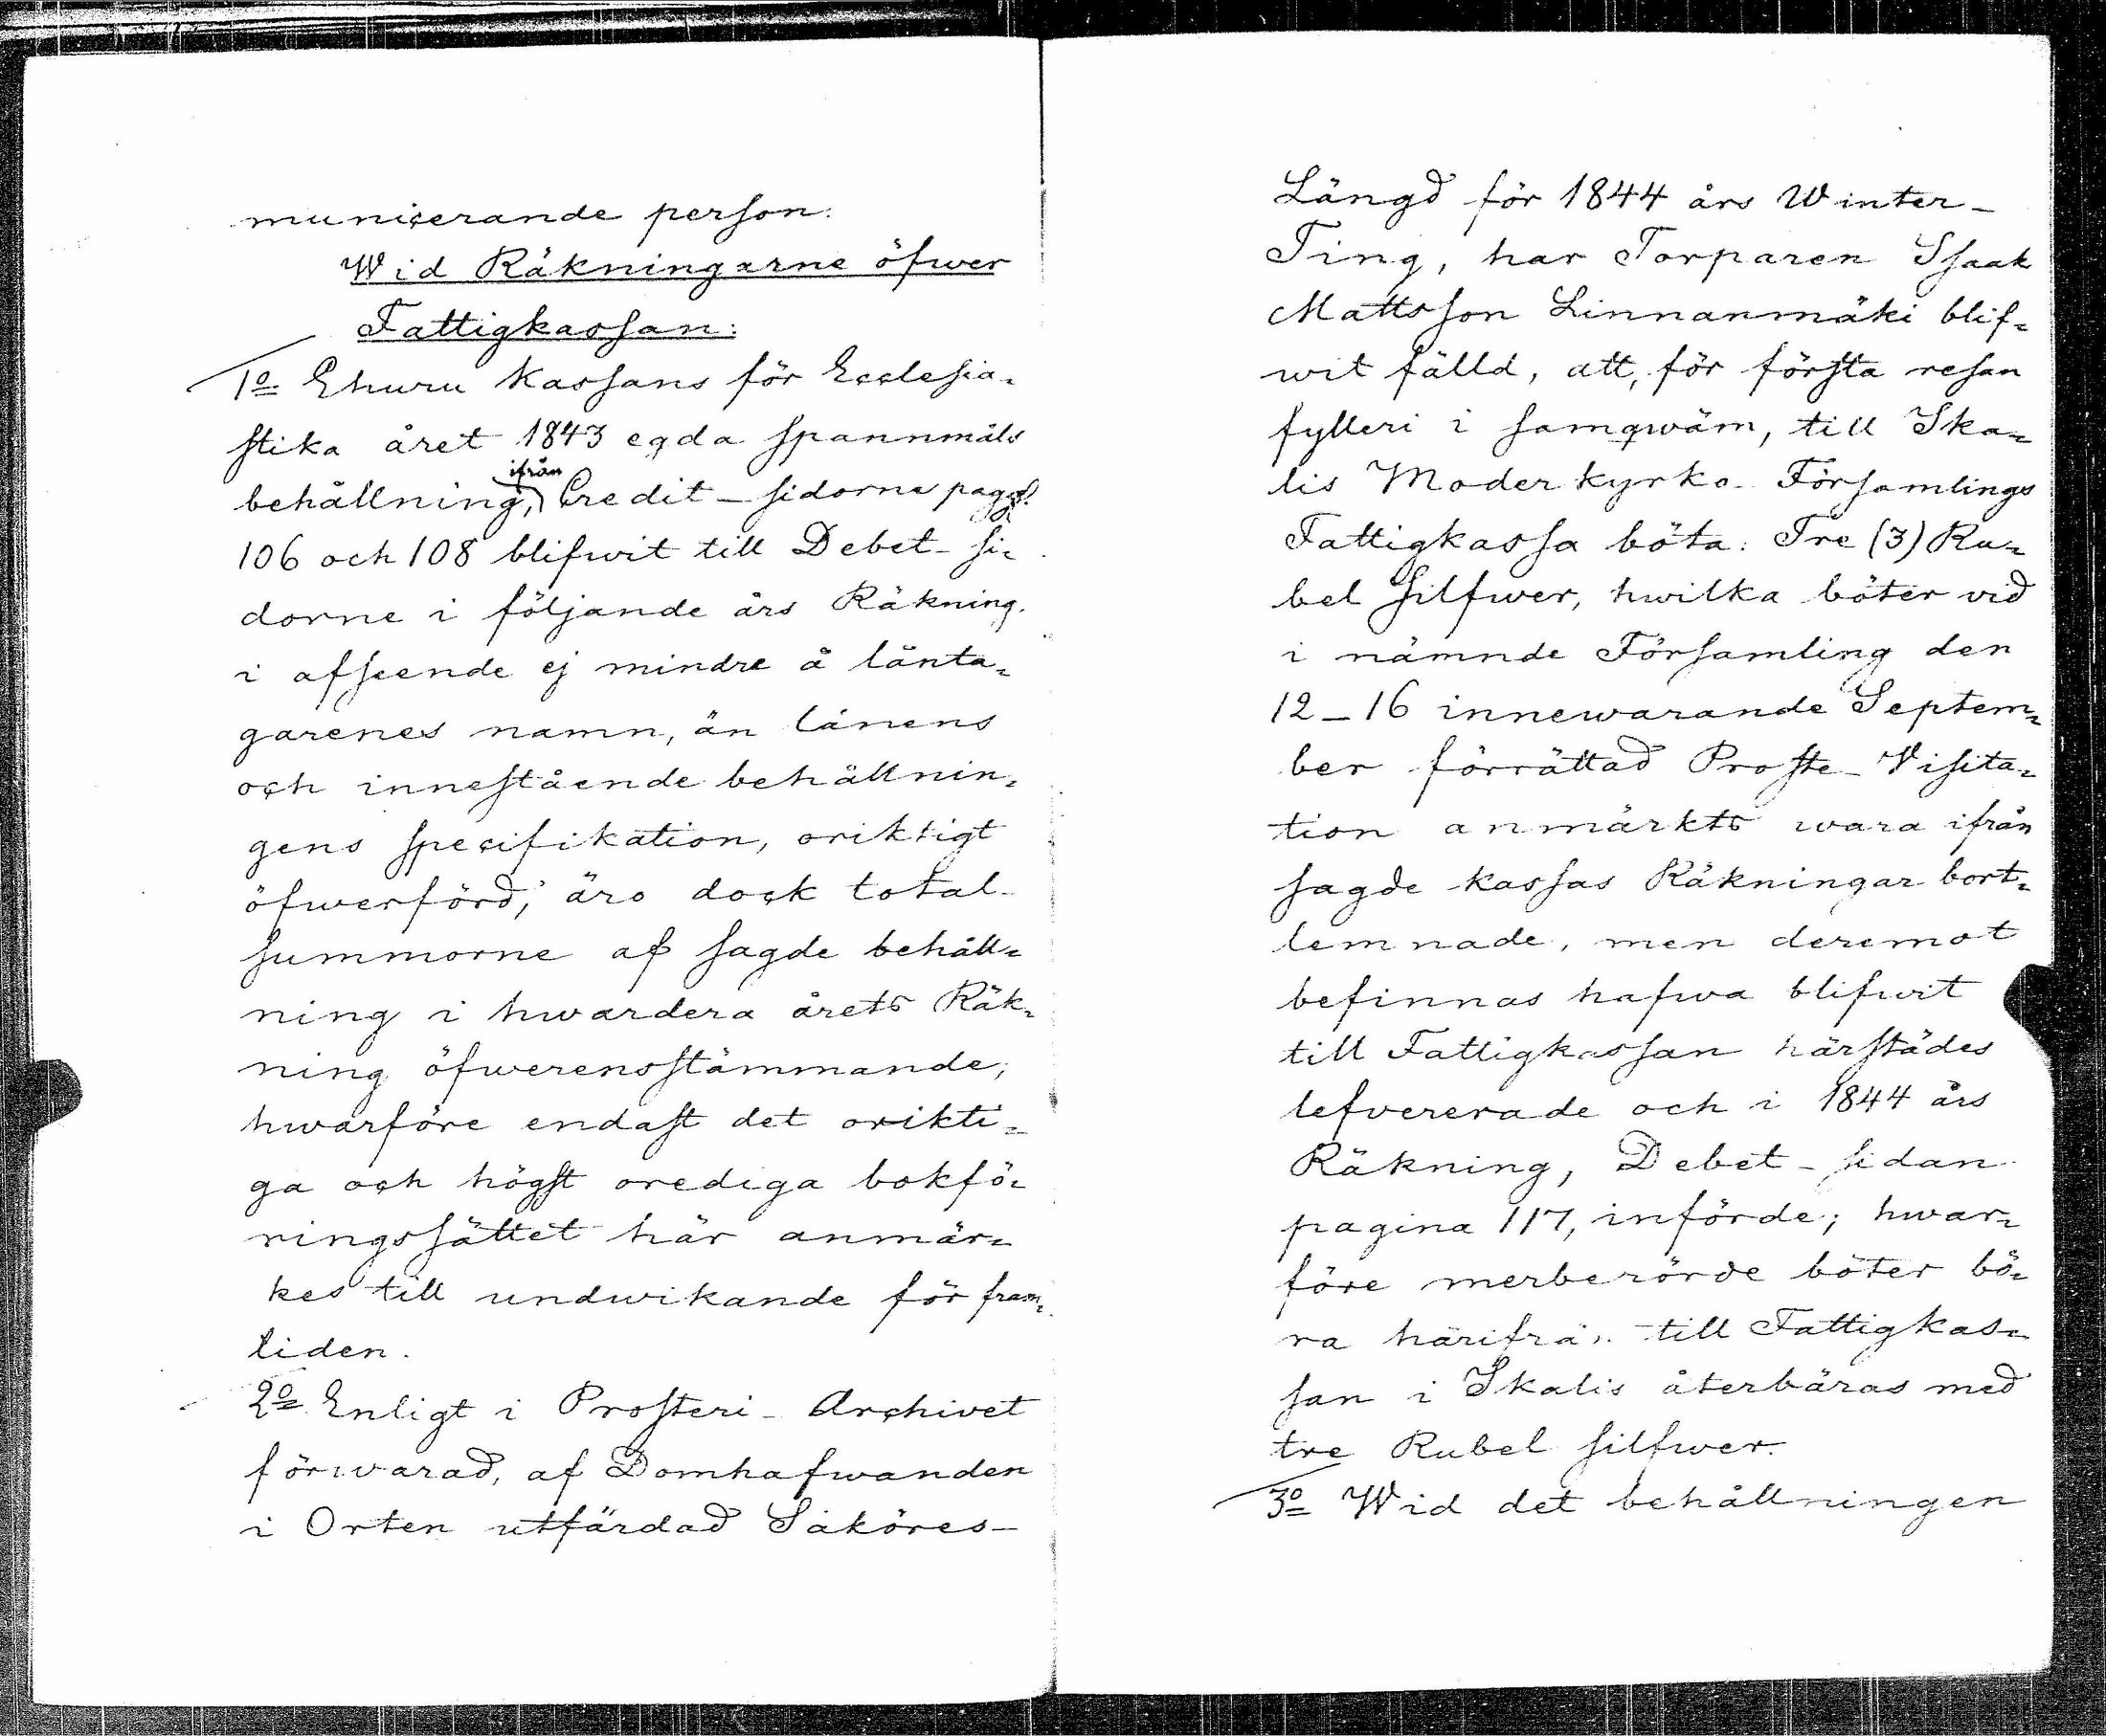 municerande person.
Wid Räkningarne öfwer
Fattigkassan:
1o Ehuru kassans för Ecclesia-
stika året 1843 egda spannmåls
behållning, ifrån Credit-sidorne pagg.
106 och 108 blifwit till Debet-si-
dorne i följande års Räkning.
i afseende ej mindre å lånta-
garenes namn, än lånens
och innestående behållnin-
gens specifikation, oriktigt
öfwerförd, äro dock total-
summorne af sagde behåll-
ning i hwardera årets Räk-
ning öfwerensstämmande,
hwarföre endast det orikti-
ga och högst orediga bokfö-
ringssättet här anmär-
kes till undwikande för fram-
tiden.
2o Enligt i Prosteri-Archivet
förwarad, af Domhafwanden
i Orten utfärdad Saköres-
Längd för 1844 års Winter-
Ting, har Torparen Isaak
Mattsson Linnanmäki blif-
wit fälld, att, för första resan
fylleri i samqwäm, till Ika-
lis Moderkyrko-Församlings
Fattigkassa böta: Tre (3) Ru-
bel silfwer, hwilka böter vid
i nämnde Församling den
12-16 innewarande Septem-
ber förrättad Proste-Visita-
tion anmärkts wara ifrån
sagde kassas Räkningar bort-
lemnade, men deremot
befinnas hafwa blifwit
till Fattigkassan härstädes
lefvererade och i 1844 års
Räkning, Debet-sidan
pagina 117, införde; hwar-
före merberörde böter bö-
ra härifrå. till Fattigkas-
san i Ikalis återbäras med
tre Rubel silfwer.
3o Wid det behållningen